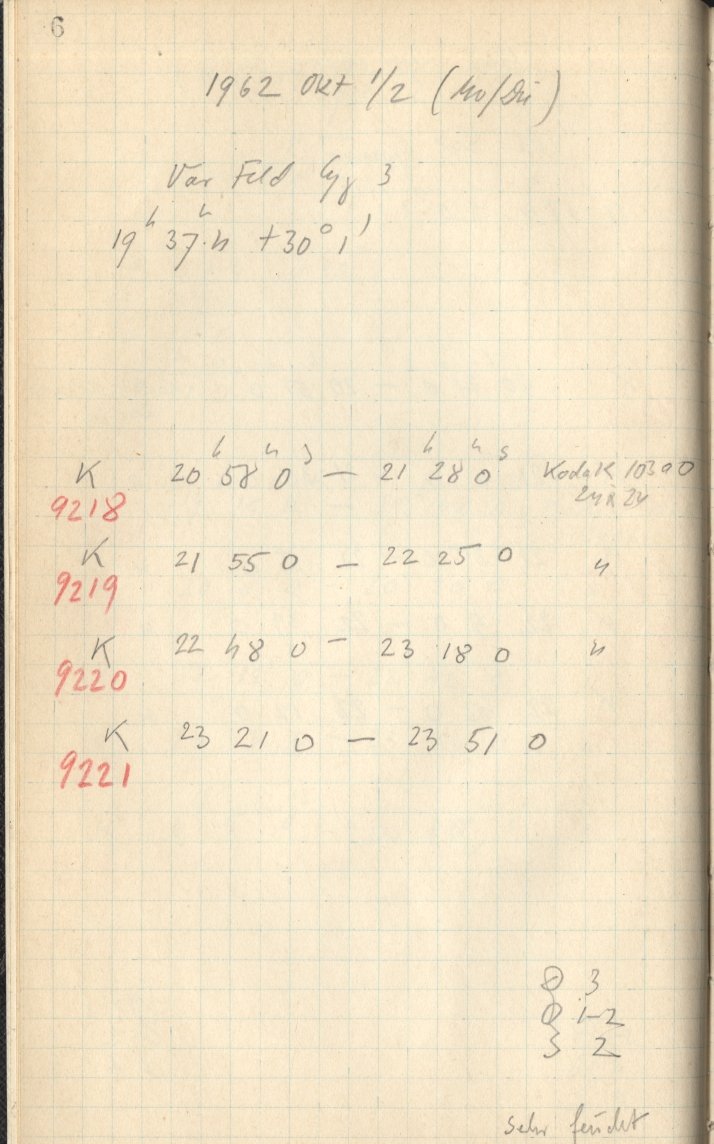 6
1962 Okt 1/2 (Mo/Di)
Var Feld Cyg 3
19h 37.4 +30° 1'
K 20h 58m 0s — 21h 28m 0s Kodak 103aO
9218 24x24
K 21 55 0 — 22 25 0 "
9219
K 22 48 0 — 23 18 0 "
9220
K 23 21 0 — 23 51 0
9221
3
Q 1-2
S 2
sehr feucht